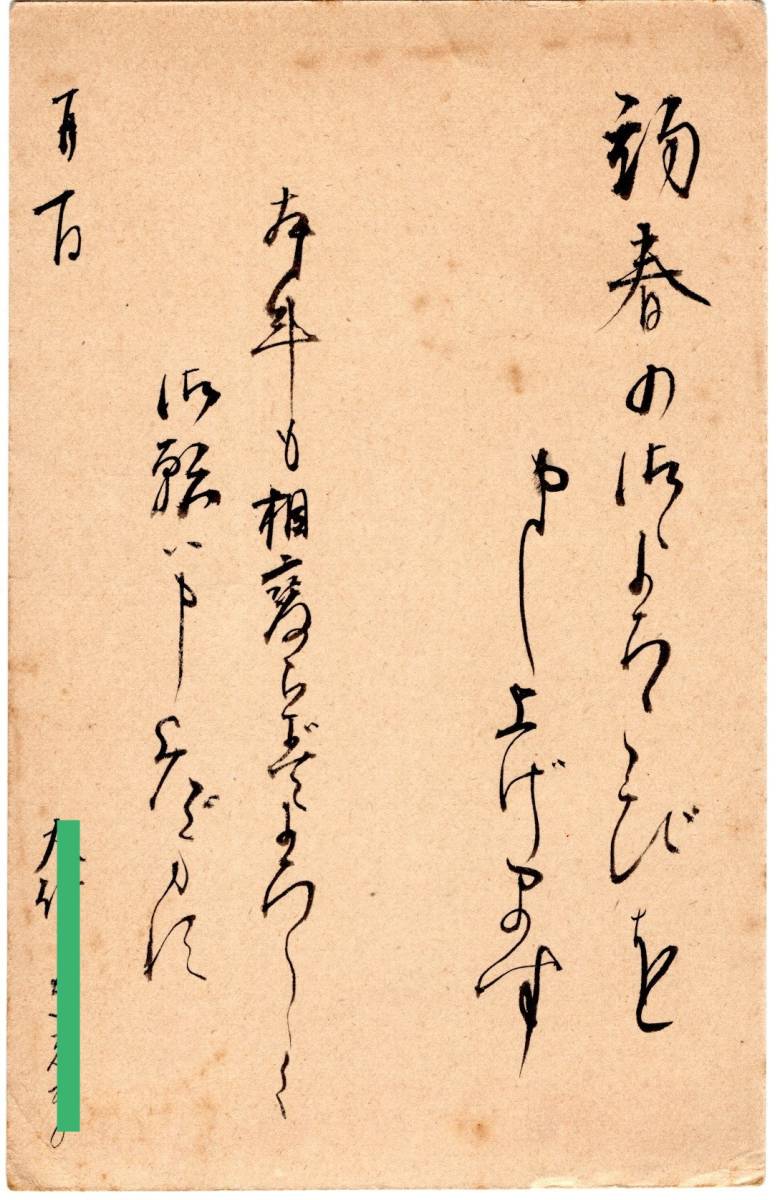 初春の御よろこびを
申し上げます
本年も相變らずよろしく
御願い申し上げます
一月一日